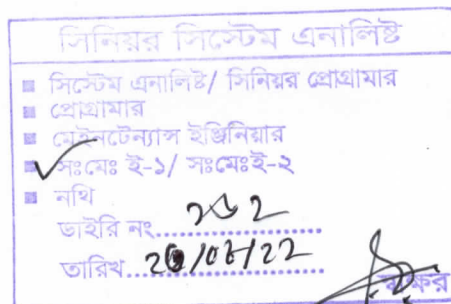 সিনিয়র সিস্টেম এনালিষ্ট
■ সিস্টেম এনালিষ্ট/ সিনিয়র প্রোগ্রামার
■ প্রোগ্রামার
■ মেইনটেন্যান্স ইঞ্জিনিয়ার
■ সঃমেঃ ই-১/ সঃমেঃই-২
■ নথি
ডাইরি নং..............
তারিখ..............
স্বাক্ষর